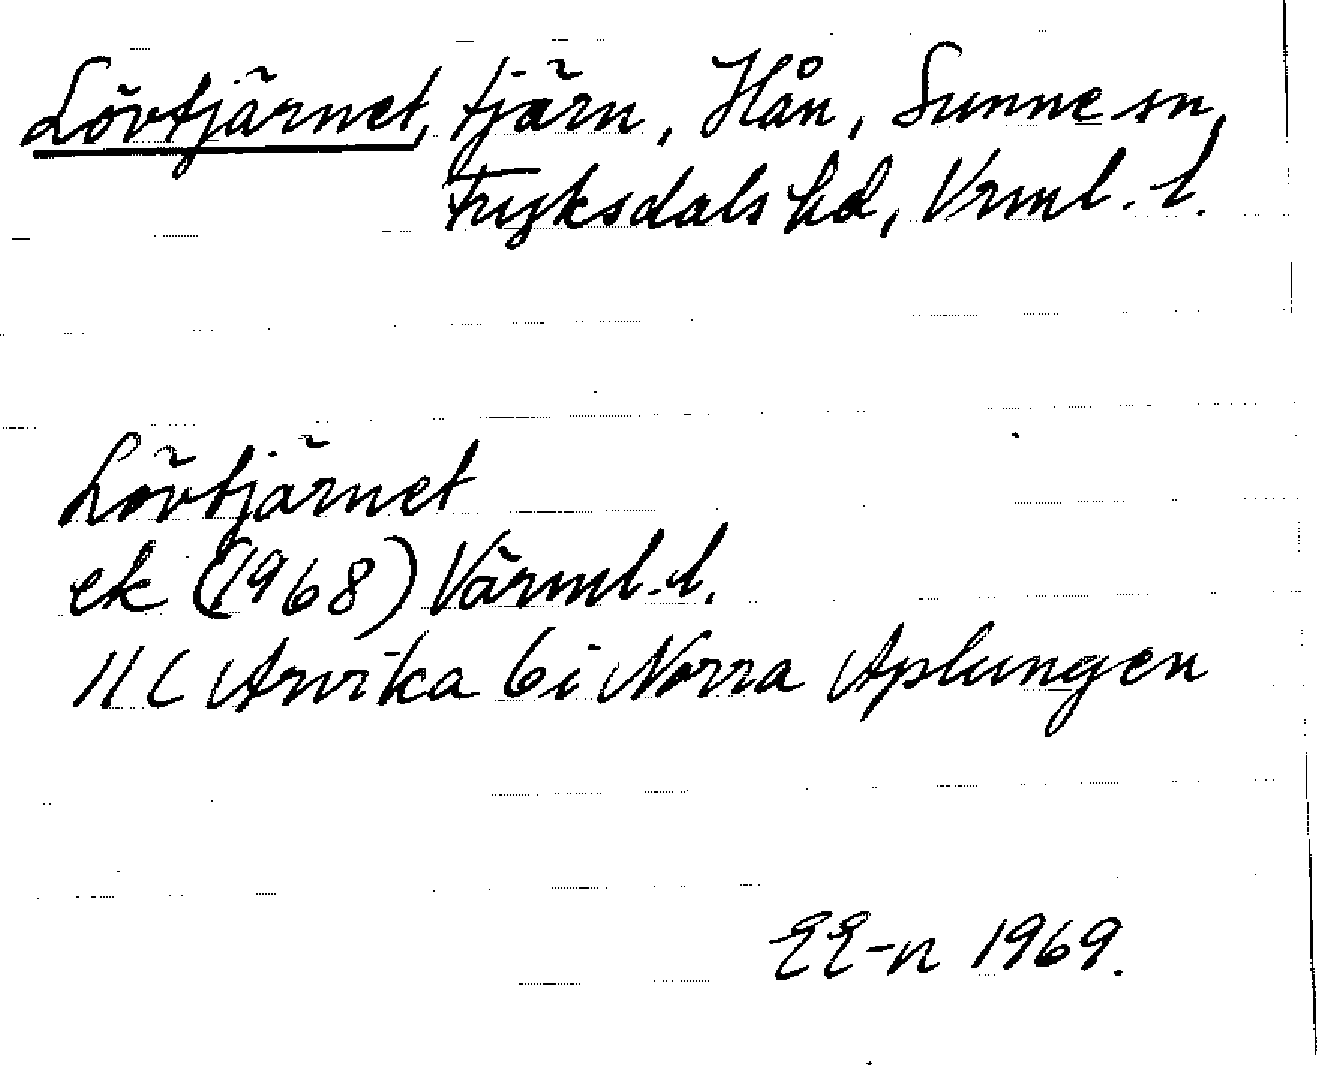 Lövtjärnet, tjärn, Hån, Sunne sn,
Fryksdals hd, Vrml. l.
Lövtjärnet
ek (1968) Värml. l.
11C Arvika 6i Norra Aplungen
EE-n 1969.